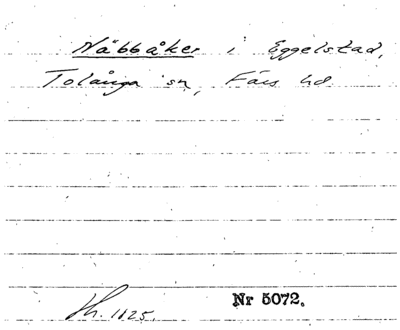 Näbbåker i Eggelstad,
Tolånga sn, Färs hd.
1125.
Nr 5072.